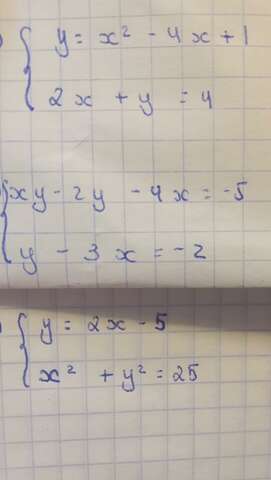 y = x² - 4x + 1
2x + y = 4
xy - 2y - 4x = -5
y - 3x = -2
y = 2x - 5
x² + y² = 25